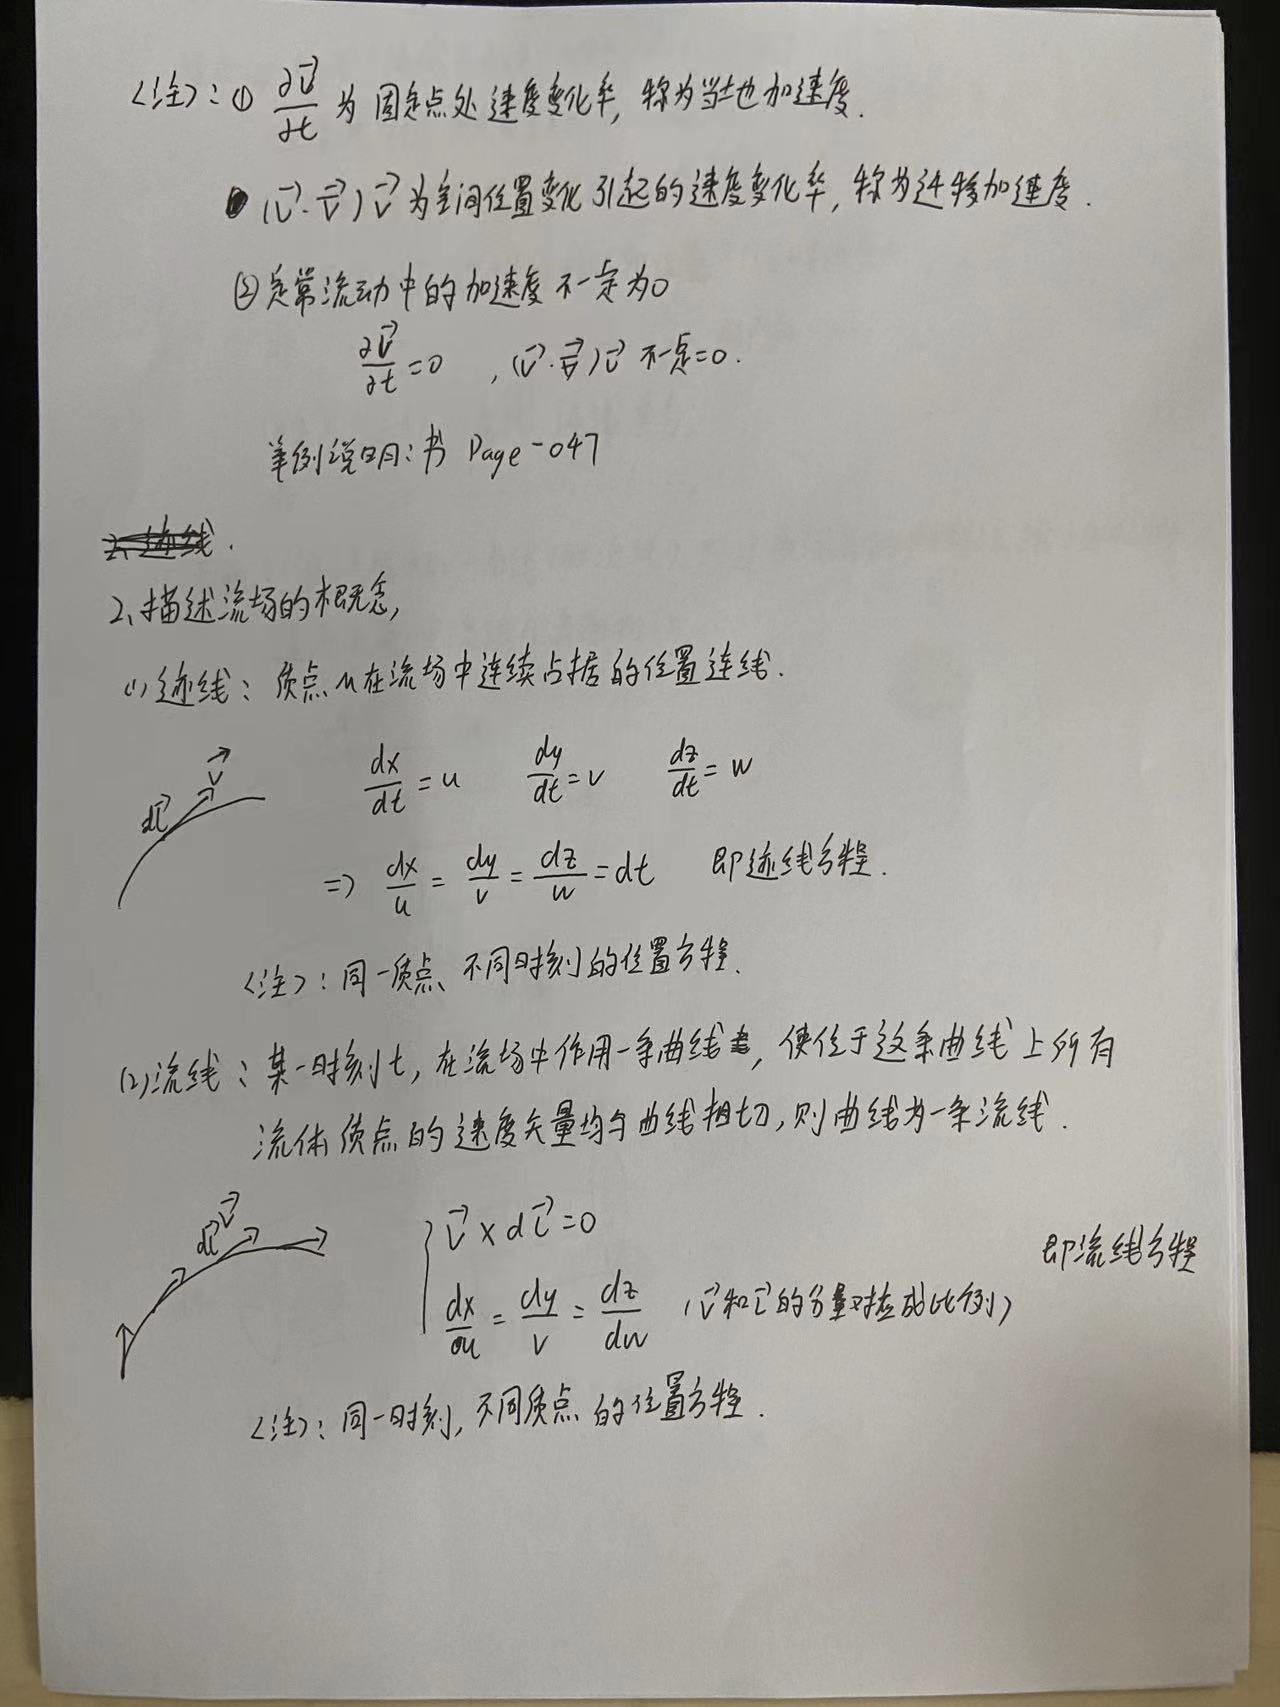 <注>：① ∂V⃗/∂t 为固定点处速度变化率，称为当地加速度.
(V⃗·∇⃗)V⃗ 为空间位置变化引起的速度变化率，称为迁移加速度.
②定常流动中的加速度不一定为0
∂V⃗/∂t=0 ，(V⃗·∇⃗)V⃗ 不一定=0.
举例说明：书 Page-047
2、迹线.
2、描述流场的概念，
(1)迹线：质点M在流场中连续占据的位置连线.
V⃗
dl⃗
dx/dt=u dy/dt=v dz/dt=w
=> dx/u=dy/v=dz/w=dt 即迹线方程.
<注>：同一质点、不同时刻的位置方程.
(2)流线：某一时刻t，在流场中作用一条曲线，使位于这条曲线上所有
流体质点的速度矢量均与曲线相切，则曲线为一条流线.
V⃗
dl⃗
V⃗×dl⃗=0
即流线方程
dx/u=dy/v=dz/dw (V⃗和l⃗的分量对应成比例)
<注>：同一时刻，不同质点的位置方程.